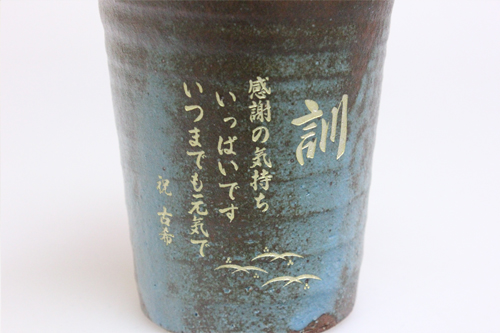 訓
感謝の気持ち
いっぱいです
いつまでも元気で
祝 古希